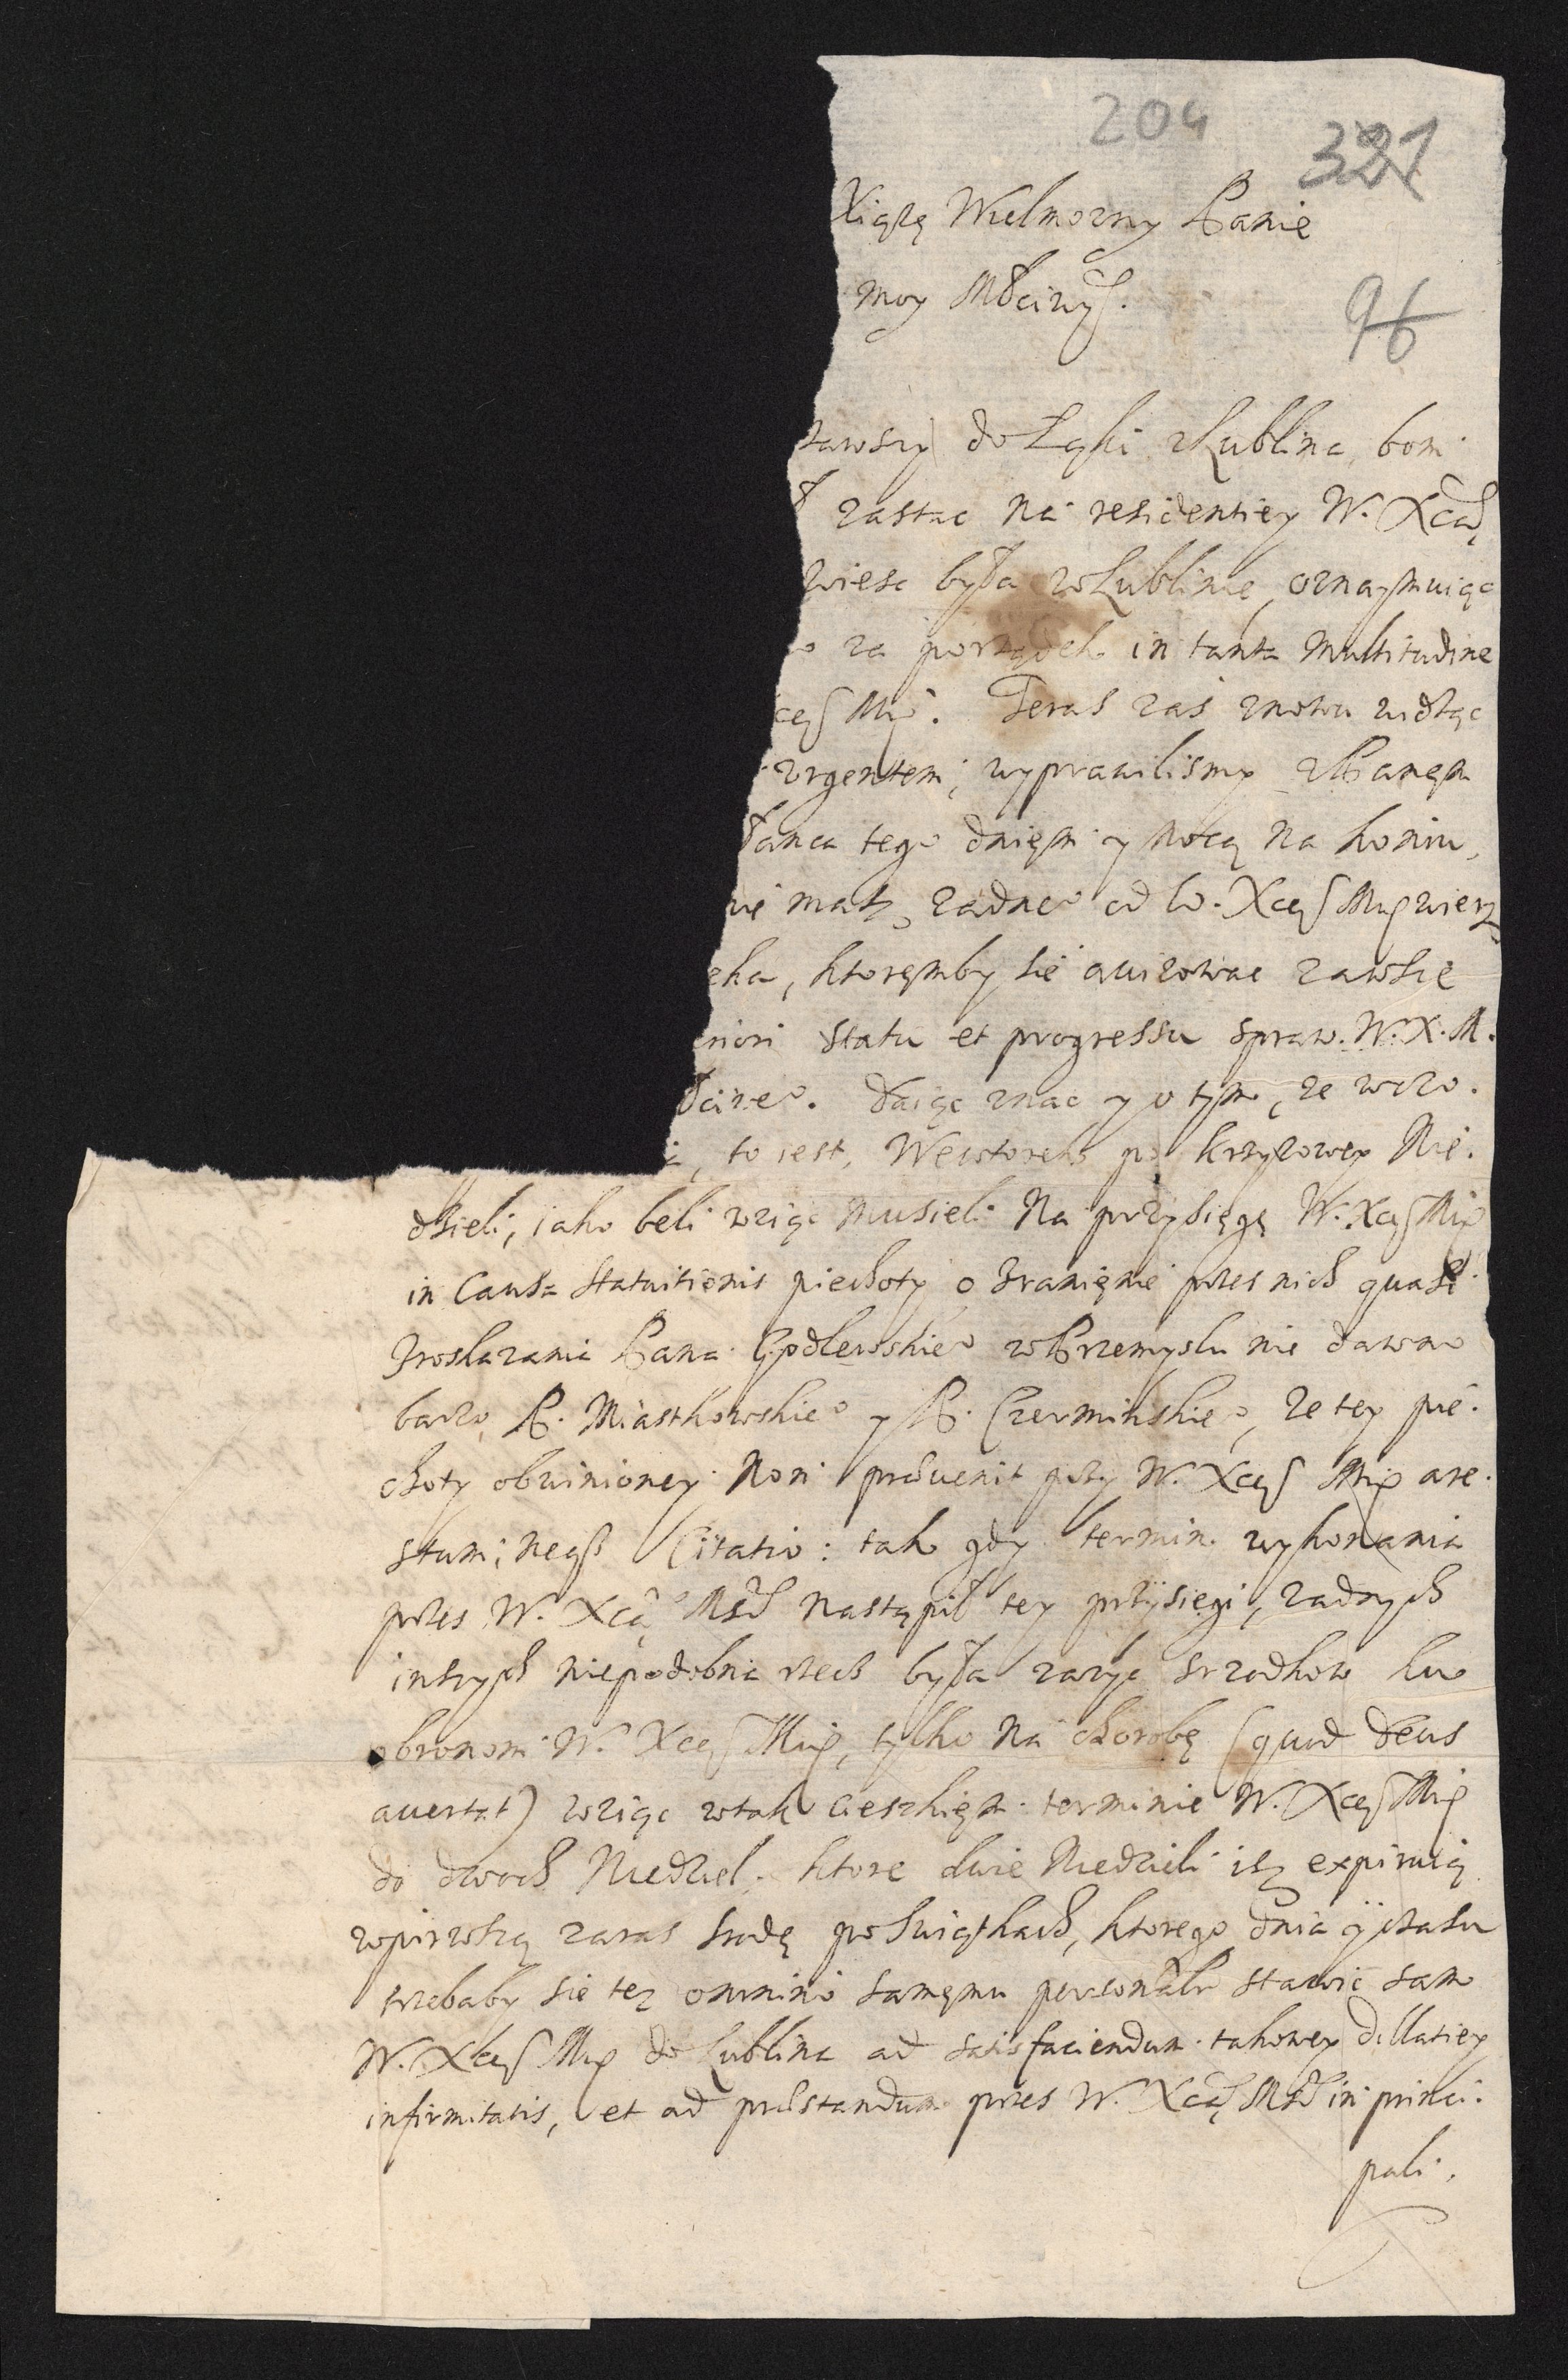 204
321
Xiążę Wielmozny Panie
moy Młciwy.
96
tawszy do Łąki z Lublina, bom
ł zastac na residentiey W. Xcą
wiesc była w Lublinie, oznaymuiąc
o za porządek in tanta multitudine
cey Mci. Teras zas znowu widząc
urgentem, wyprawilismy z Panem
łanca tego dniem y nocą na koniu,
nie masz zadnego od W. Xcey Mci wierz
eka, ktorymby sie auizowac zawsze
niori statu et progressu spraw. W. X. M.
łciwego. daiąc znac y o tym, ze wczo.
i, to iest, We wtorek po krzyzowey Nie.
dzieli, iako beli wziąc musieli na przysięgę W. Xcey Mci
in Causa statuitionis piechoty o zranienie przes nich quasi
z roskazania Pana Godlewskiego w Przemyslu nie dawno
barzo, P. Miastkowskiego y P. Czerminskiego, ze tey pie.
choty obwinioney non praeuenit przy W. Xcey Mci are.
stum, neqs Citatio: tak gdy termin wykonania
przes W. Xcą Msć nastąpił tey przysięgi, zadnych
inszych niepodobna rzecz była zazyc srzodkow ku
obronom W. Xcey Mci, tylko na chorobę (quod Deus
auertat) wziąc w tak cieszkiem terminie W. Xcey Mci
do dwoch Niedziel. ktore dwie Niedzieli isz expiruią
w pirwszą zaras srodę po swiątkach, ktorego dnia y czasu
trzebaby sie tez omnino samemu personalr stawic sam
W. Xcey Mci do Lublina ad satisfaciendum takowey dillatiey
infirmitatis, et ad praestandum przes W. Xcą Msć in princi.
pali.